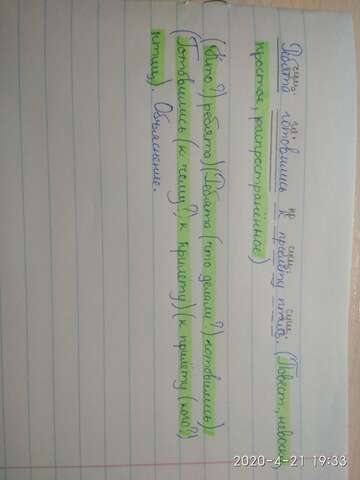 сущ. гл. пр сущ. сущ.
Ребята готовились к прилёту птиц. (Повест, невоскл,
простое, распространённое)
(Кто?) ребята)(Ребята (что делали?) готовились)
(Готовились (к чему?) к прилёту)(к прилёту (кого?)
птиц). Объяснение.
2020-4-21 19:33